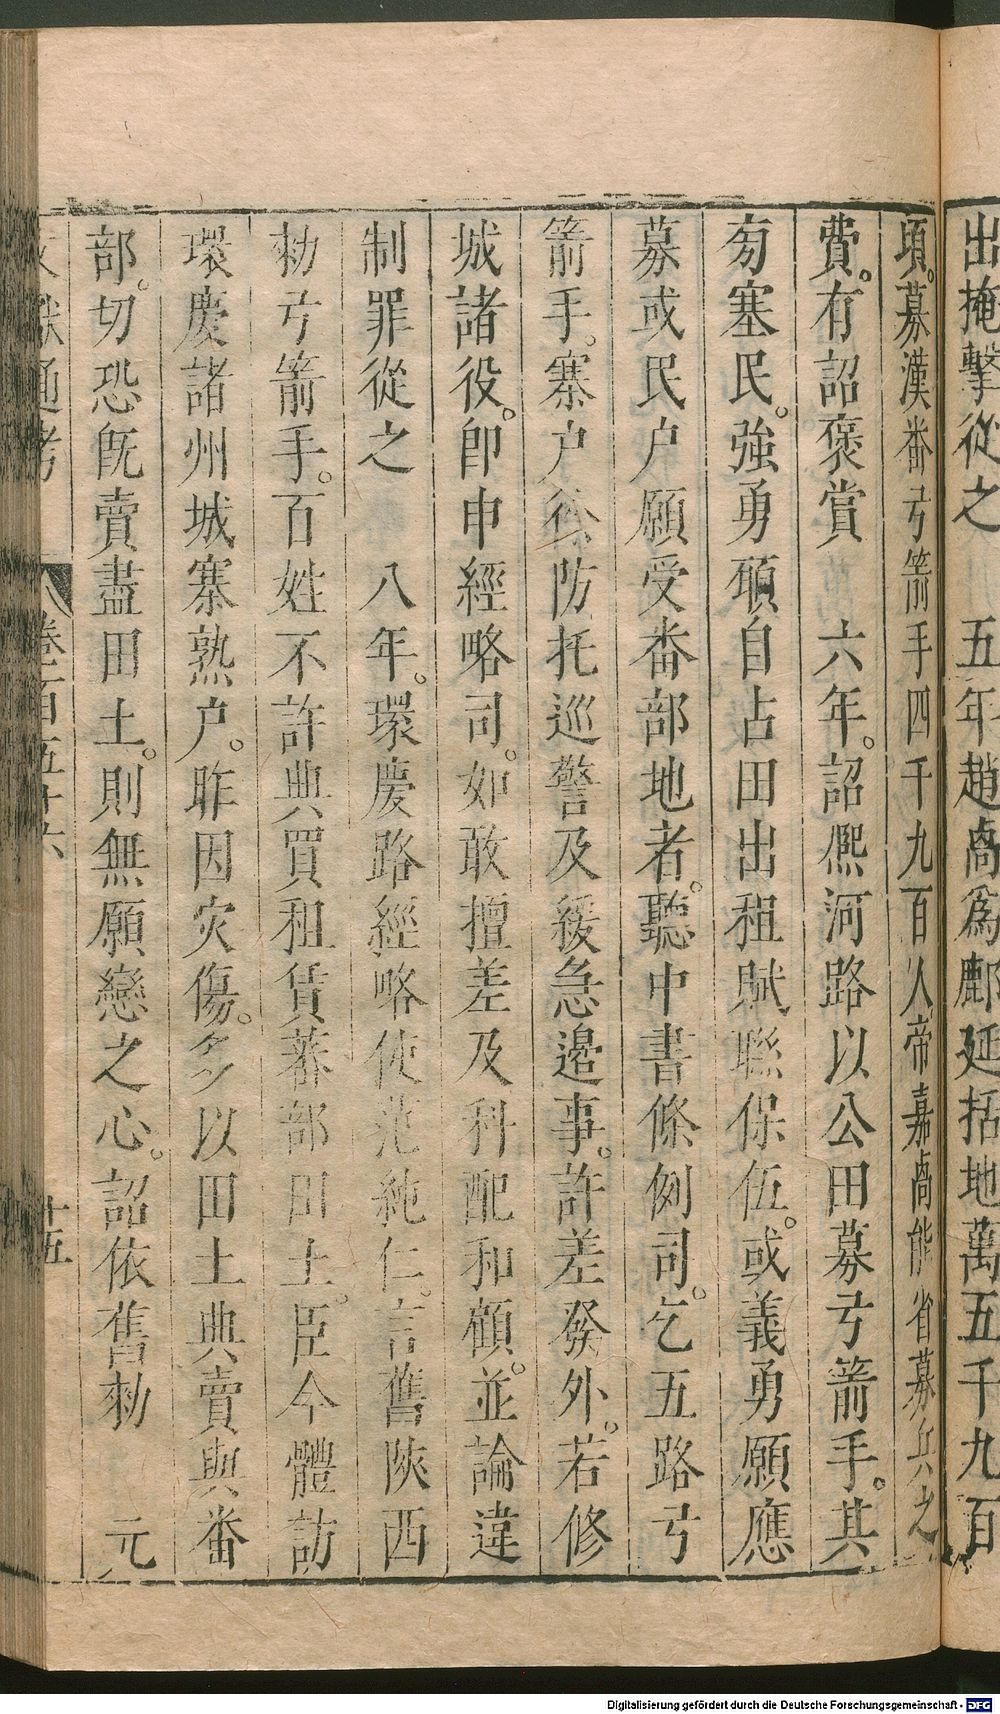 出掩擊從之　五年趙卨爲鄜延括地萬五千九百
頃。募漢畨弓箭手四千九百人帝嘉卨能省募兵之
費。有詔褒賞　六年。詔熈河路以公田募弓箭手。其
旁塞民。強勇碩自占田出租賦聮保伍。或義勇願應
募或民户願受畨部地者。聽中書條例司。乞五路弓
箭手。寨户。除防托巡警及緩急邉事。許差發外。若修
城諸役。卽申經略司。如敢擅差及科配和顧。並論違
制罪從之　八年。環慶路經略使范純仁。言舊陜西
勑弓箭手。百姓不許典買租賃蕃部田土。臣今體訪
環慶諸州城寨熟户。昨因灾傷。多以田土典賣與畨
部。切恐旣賣盡田土。則無願戀之心。詔依舊勑　元
文獻通考　卷一百五十六　十五
Digitalisierung gefördert durch die Deutsche Forschungsgemeinschaft - DFG